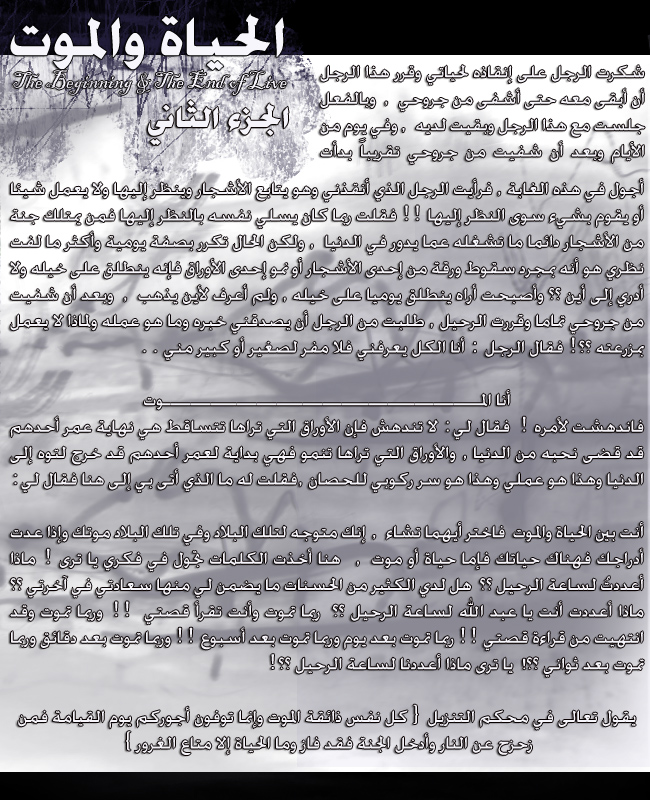 الحياة والموت
The Beginning & The End of Live
الجزء الثاني
شكرت الرجل على إنقاذه لحياتي وقرر هذا الرجل
أن أبقى معه حتى أشفى من جروحي , وبالفعل
جلست مع هذا الرجل وبقيت لديه , وفي يوم من
الأيام وبعد أن شفيت من جروحي تقريباً بدأت
أجول في هذه الغابة , فرأيت الرجل الذي أنقذني وهو يتابع الأشجار وينظر إليها ولا يعمل شيئا
أو يقوم بشيء سوى النظر إليها !! فقلت ربما كان يسلي نفسه بالنظر إليها فمن يمتلك جنة
من الأشجار دائما ما تشغله عما يدور في الدنيا , ولكن الحال تكرر بصفة يومية وأكثر ما لفت
نظري هو أنه بمجرد سقوط ورقة من إحدى الأشجار أو نمو إحدى الأوراق فإنه ينطلق على خيله ولا
أدري إلى أين ؟؟ وأصبحت أراه ينطلق يوميا على خيله , ولم أعرف لأين يذهب , وبعد أن شفيت
من جروحي تماما وقررت الرحيل , طلبت من الرجل أن يصدقني خبره وما هو عمله ولماذا لا يعمل
بمزرعته ؟؟! فقال الرجل : أنا الكل يعرفني فلا مفر لصغير أو كبير مني . .
أنا المـــــــــــــــــــــــــــــــــــــــــوت
فاندهشت لأمره ! فقال لي : لا تندهش فإن الأوراق التي تراها تتساقط هي نهاية عمر أحدهم
قد قضى نحبه من الدنيا , والأوراق التي تراها تنمو فهي بداية لعمر أحدهم قد خرج لتوه إلى
الدنيا وهذا هو عملي وهذا هو سر ركوبي للحصان ,فقلت له ما الذي أتى بي إلى هنا فقال لي :
أنت بين الحياة والموت فاختر أيهما تشاء , إنك متوجه لتلك البلاد وفي تلك البلاد موتك وإذا عدت
أدراجك فهناك حياتك فإما حياة أو موت , هنا أخذت الكلمات تجول في فكري يا ترى ! ماذا
أعددتُ لساعة الرحيل ؟؟ هل لدي الكثير من الحسنات ما يضمن لي منها سعادتي في آخرتي ؟؟
ماذا أعددت أنت يا عبد الله لساعة الرحيل ؟؟ ربما تموت وأنت تقرأ قصتي !! وربما تموت وقد
انتهيت من قراءة قصتي !! ربما تموت بعد يوم وربما تموت بعد أسبوع !! وربما تموت بعد دقائق وربما
تموت بعد ثواني ؟؟! يا ترى ماذا أعددنا لساعة الرحيل ؟؟!
يقول تعالى في محكم التنزيل { كل نفس ذائقة الموت وإنما توفون أجوركم يوم القيامة فمن
زحزح عن النار وأدخل الجنة فقد فاز وما الحياة إلا متاع الغرور }